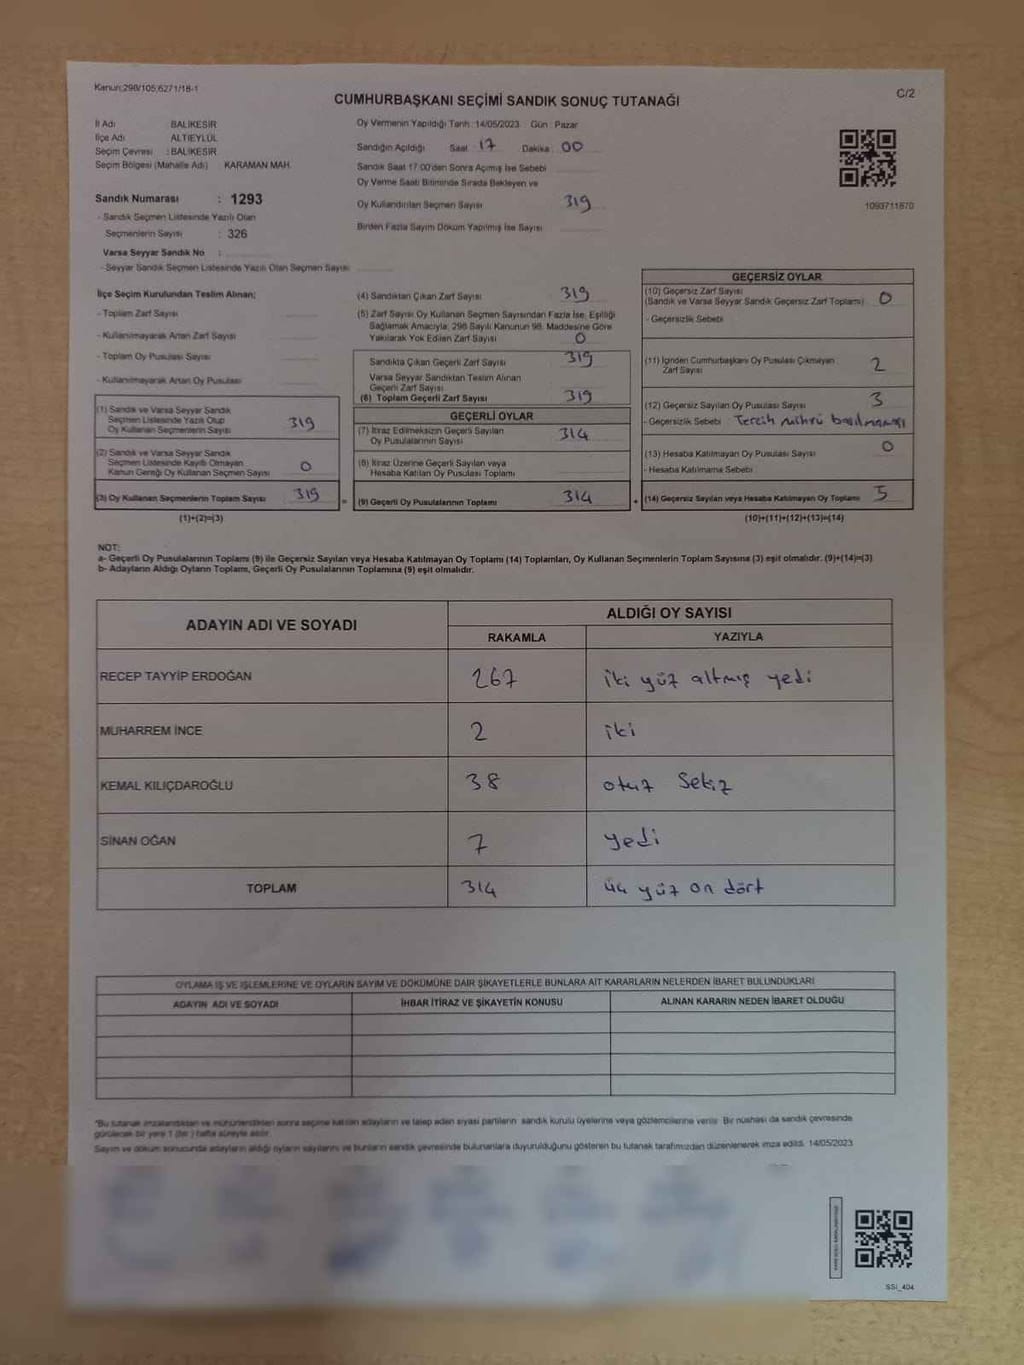 Kanun:298/105,6271/18-1
C/2
CUMHURBAŞKANI SEÇİMİ SANDIK SONUÇ TUTANAĞI
İl Adı BALIKESİR
İlçe Adı ALTIEYLÜL
Seçim Çevresi : BALIKESİR
Seçim Bölgesi (Mahalle Adı) KARAMAN MAH.
Sandık Numarası : 1293
- Sandık Seçmen Listesinde Yazılı Olan
Seçmenlerin Sayısı : 326
Varsa Seyyar Sandık No :
- Seyyar Sandık Seçmen Listesinde Yazılı Olan Seçmen Sayısı
Oy Vermenin Yapıldığı Tarih : 14/05/2023 Gün : Pazar
Sandığın Açıldığı Saat : 17 Dakika : 00
Sandık Saat 17:00'den Sonra Açılmış İse Sebebi
Oy Verme Saati Bitiminde Sırada Bekleyen ve
Oy Kullandırılan Seçmen Sayısı 319
Birden Fazla Sayım Döküm Yapılmış İse Sayısı
1093711670
İlçe Seçim Kurulundan Teslim Alınan;
- Toplam Zarf Sayısı
- Kullanılmayarak Artan Zarf Sayısı
- Toplam Oy Pusulası Sayısı
- Kullanılmayarak Artan Oy Pusulası
(1) Sandık ve Varsa Seyyar Sandık
Seçmen Listesinde Yazılı Olup
Oy Kullanan Seçmenlerin Sayısı 319
(2) Sandık ve Varsa Seyyar Sandık
Seçmen Listesinde Kayıtlı Olmayan
Kanun Gereği Oy Kullanan Seçmen Sayısı 0
(3) Oy Kullanan Seçmenlerin Toplam Sayısı 319 =
(1)+(2)=(3)
(4) Sandıktan Çıkan Zarf Sayısı 319
(5) Zarf Sayısı Oy Kullanan Seçmen Sayısından Fazla İse, Eşitliği
Sağlamak Amacıyla, 298 Sayılı Kanunun 98. Maddesine Göre
Yakılarak Yok Edilen Zarf Sayısı 0
Sandıkta Çıkan Geçerli Zarf Sayısı 319
Varsa Seyyar Sandıktan Teslim Alınan
Geçerli Zarf Sayısı
(6) Toplam Geçerli Zarf Sayısı 319
GEÇERLİ OYLAR
(7) İtiraz Edilmeksizin Geçerli Sayılan
Oy Pusulalarının Sayısı 314
(8) İtiraz Üzerine Geçerli Sayılan veya
Hesaba Katılan Oy Pusulası Toplamı
(9) Geçerli Oy Pusulalarının Toplamı 314 +
GEÇERSİZ OYLAR
(10) Geçersiz Zarf Sayısı
(Sandık ve Varsa Seyyar Sandık Geçersiz Zarf Toplamı) 0
- Geçersizlik Sebebi
(11) İçinden Cumhurbaşkanı Oy Pusulası Çıkmayan
Zarf Sayısı 2
(12) Geçersiz Sayılan Oy Pusulası Sayısı 3
- Geçersizlik Sebebi Tercih mührü basılmaması
(13) Hesaba Katılmayan Oy Pusulası Sayısı 0
- Hesaba Katılmama Sebebi
(14) Geçersiz Sayılan veya Hesaba Katılmayan Oy Toplamı 5
(10)+(11)+(12)+(13)=(14)
NOT:
a- Geçerli Oy Pusulalarının Toplamı (9) ile Geçersiz Sayılan veya Hesaba Katılmayan Oy Toplamı (14) Toplamları, Oy Kullanan Seçmenlerin Toplam Sayısına (3) eşit olmalıdır. (9)+(14)=(3)
b- Adayların Aldığı Oyların Toplamı, Geçerli Oy Pusulalarının Toplamına (9) eşit olmalıdır.
ADAYIN ADI VE SOYADI ALDIĞI OY SAYISI
RAKAMLA YAZIYLA
RECEP TAYYİP ERDOĞAN 267 iki yüz altmış yedi
MUHARREM İNCE 2 iki
KEMAL KILIÇDAROĞLU 38 otuz sekiz
SİNAN OĞAN 7 yedi
TOPLAM 314 üç yüz on dört
OYLAMA İŞ VE İŞLEMLERİNE VE OYLARIN SAYIM VE DÖKÜMÜNE DAİR ŞİKAYETLERLE BUNLARA AİT KARARLARIN NELERDEN İBARET BULUNDUKLARI
ADAYIN ADI VE SOYADI İHBAR İTİRAZ VE ŞİKAYETİN KONUSU ALINAN KARARIN NEDEN İBARET OLDUĞU
*Bu tutanak imzalandıktan ve mühürlendikten sonra seçime katılan adayların ve talep eden siyasi partilerin sandık kurulu üyelerine veya gözlemcilerine verilir. Bir nüshası da sandık çevresinde
görülecek bir yere 1 (bir) hafta süreyle asılır.
Sayım ve döküm sonucunda adayların aldığı oyların sayılarını ve bunların sandık çevresinde bulunanlara duyurulduğunu gösteren bu tutanak tarafımızdan düzenlenerek imza edildi. 14/05/2023
SSI_404